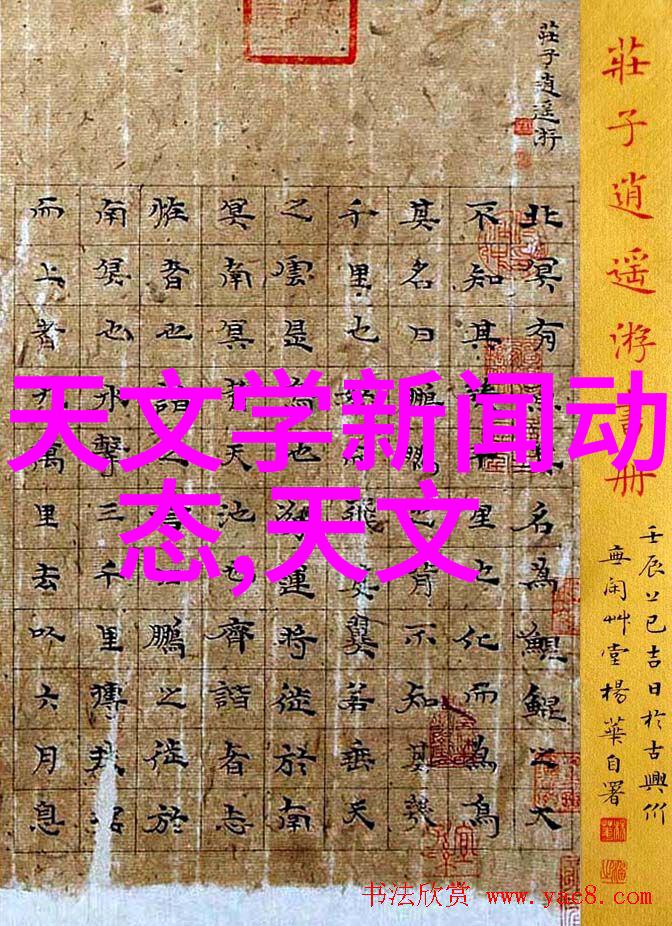 莊子逍遥游書册
壬辰上巳吉日於古興竹
無闲艸堂楊華自署
莊子逍遥游
北冥有魚其名為鯤鯤之大
不知其幾千里也化而為鳥
其名曰鵬鵬之背不知其幾
千里也怒而飛其翼若垂天
之雲是鳥也海運將徙於南
冥南冥者天池也齊諧者志
恠者也諧之言曰鵬之徙於
南冥也水擊三千里摶扶摇
而上者九萬里去以六月息
天文学新闻动
态,天文
书法欣赏 www.yac8.com